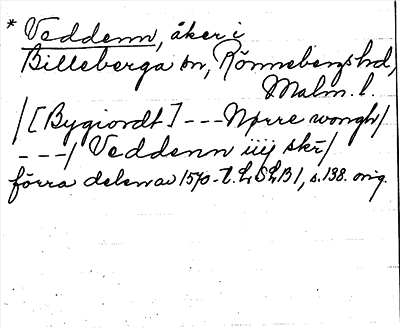 * Veddenn, åker i
Billeberga sn, Rönnebergs hd,
Malm. l.
/[Bygiordt] --- Nørre wongh/
---/ Veddenn iiij skr/
förra delen av 1570-t. LSLB1, s. 138. orig.